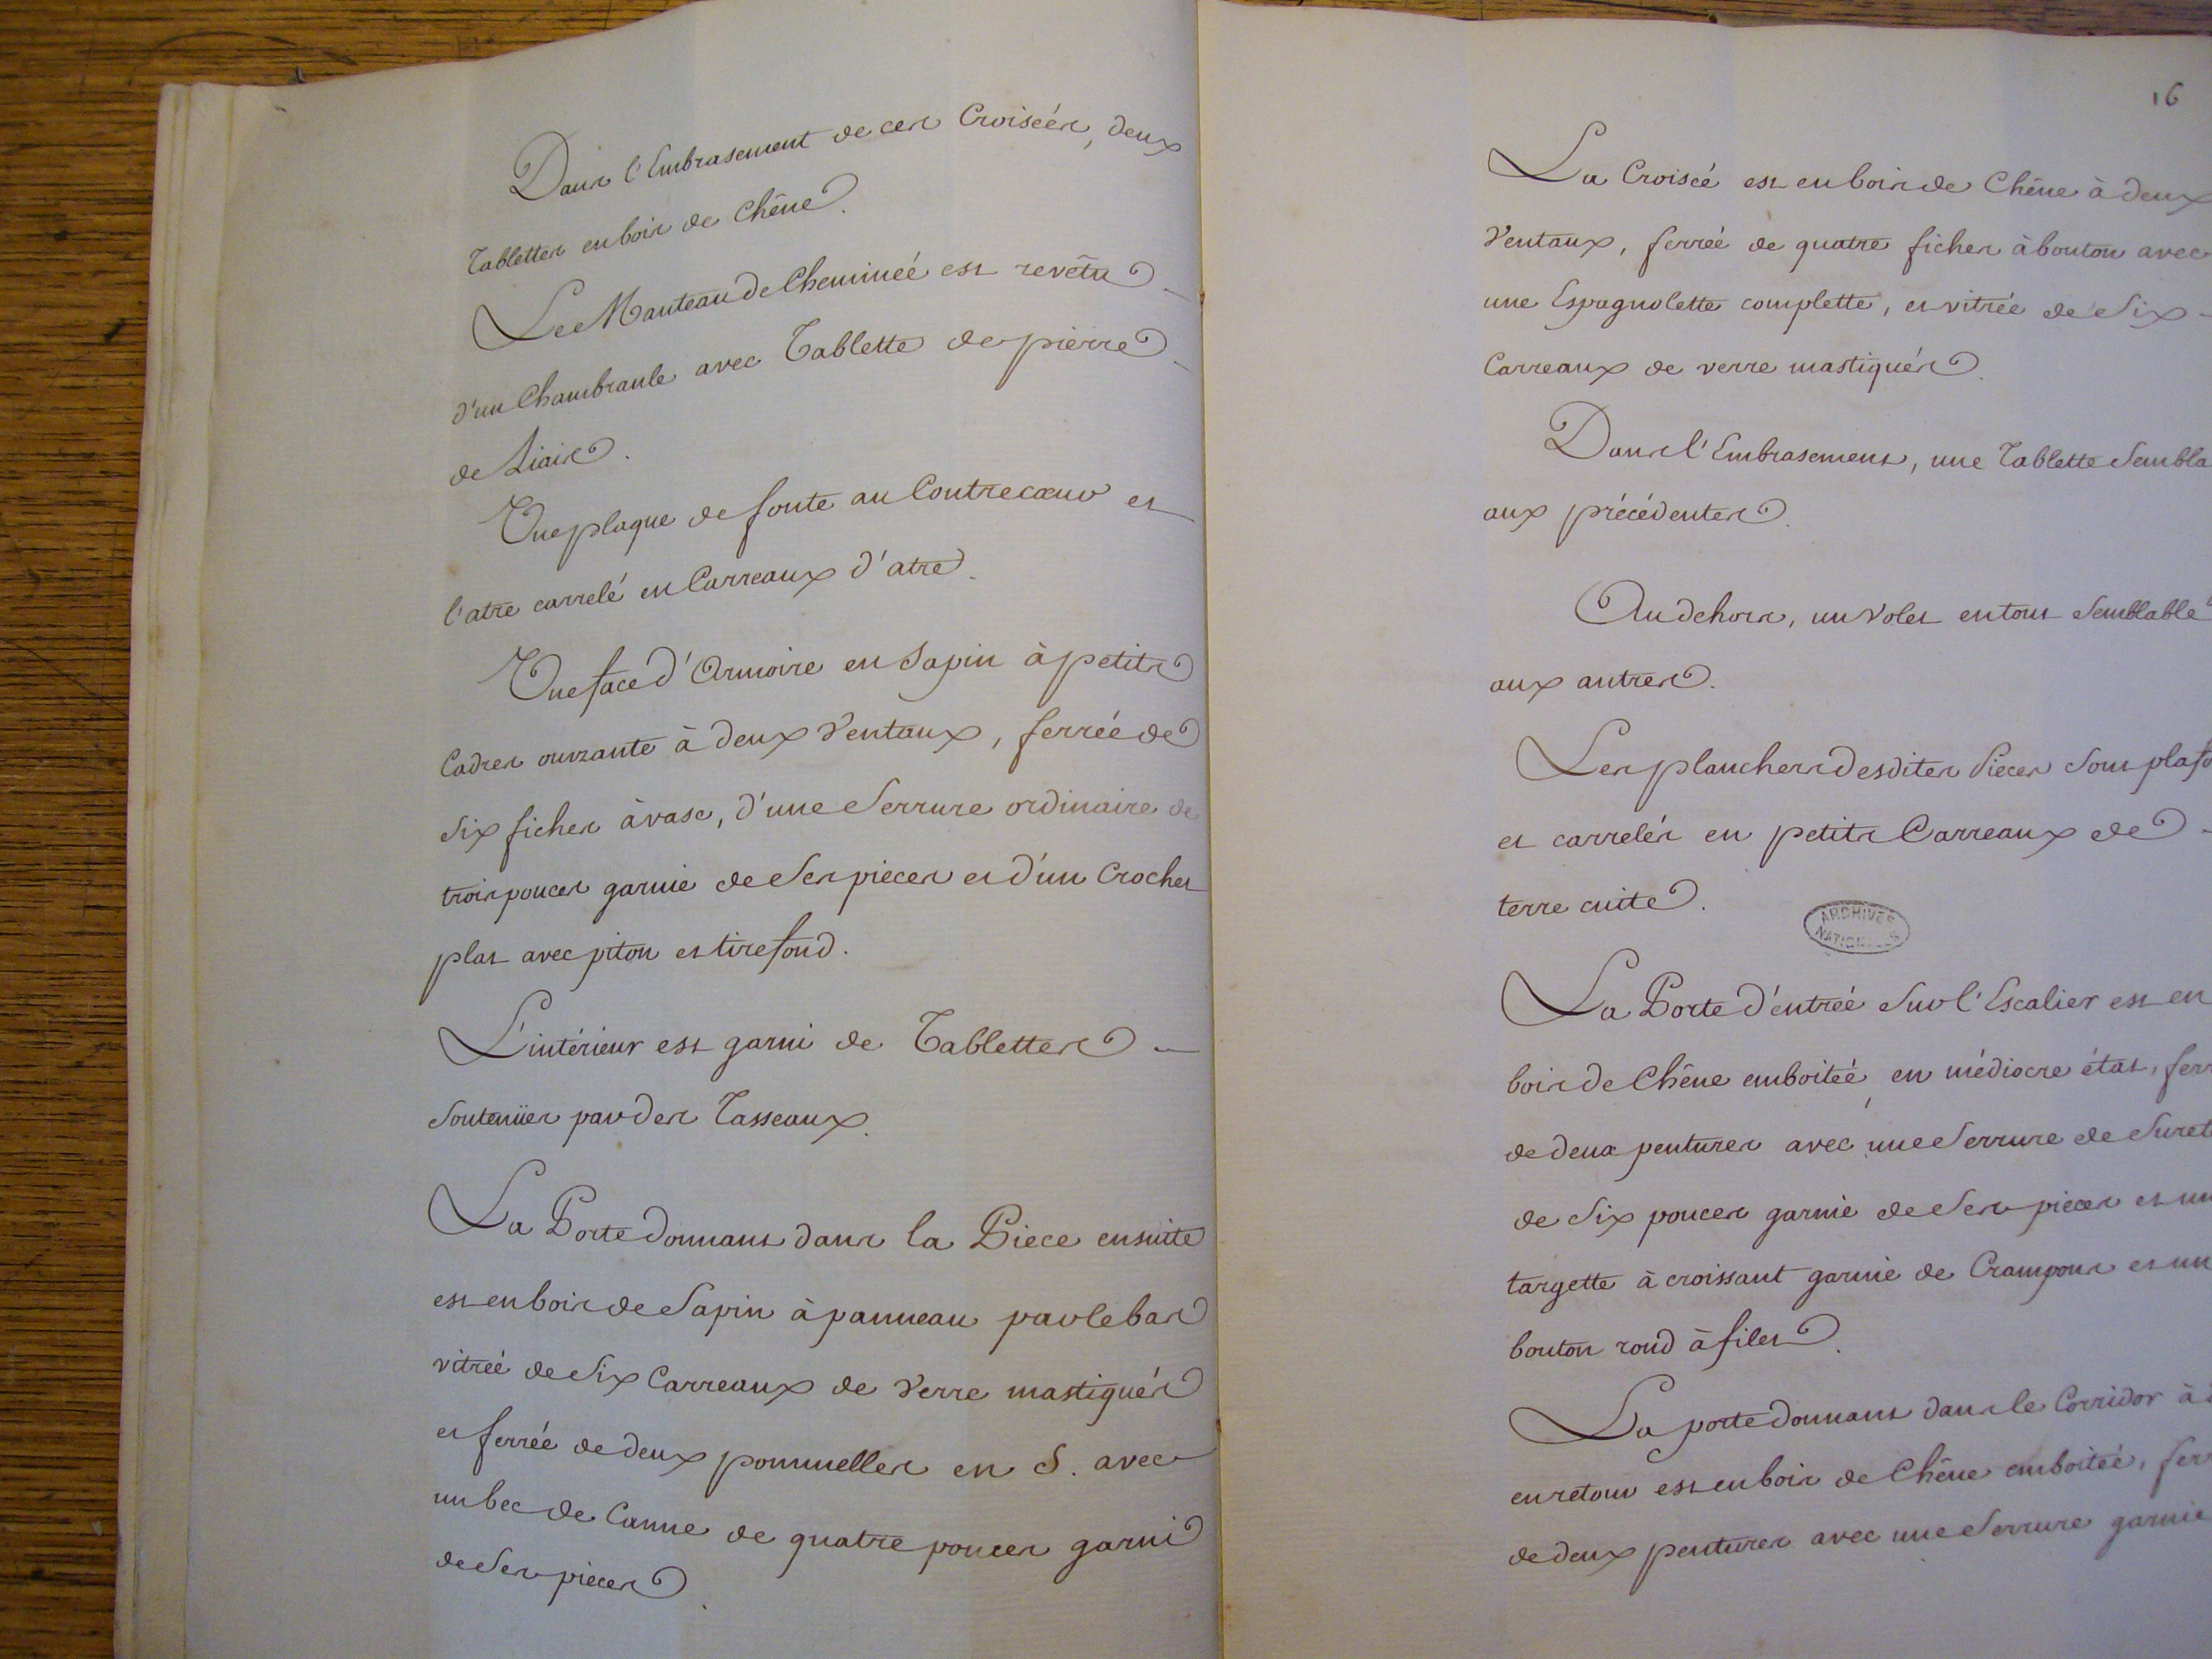 Dans l'Embrasement de ces Croisées, deux
Tablettes en bois de Chêne.
Le Manteau de Cheminée est revêtu
d'un Chambranle avec Tablette de pierre
de Liais.
Une plaque de fonte au Contrecœur et
l'atre carrelé en Carreaux d'atre.
Une face d'Armoire en Sapin à petits
Cadres ouvrante à deux Ventaux, ferrée de
Six fiches à vase, d'une Serrure ordinaire de
trois pouces garnie de Ses pièces et d'un Crochet
plat avec piton et tirefond.
L'intérieur est garni de Tablettes
Soutenües par des Tasseaux.
La Porte donnant dans la Piece ensuite
est en bois de Sapin à panneau par le bas
vitrée de Six Carreaux de Verre mastiqués
et ferrée de deux pommelles en S. avec
un bec de Canne de quatre pouces garni
de Ses pièces.
16
La Croisée est en bois de Chêne à deux
Ventaux, ferrée de quatre fiches à bouton avec
une Espagnolette complette, et vitrée de Six
Carreaux de verre mastiqués.
Dans l'Embrasement, une Tablette Sembla
aux précédentes.
Au dehors, un Volet en tout Semblable
aux autres.
Les planchers desdites Pièces Sont plafo
et carrelés en petits Carreaux de
terre cuite.
ARCHIVES
NATIONALES
La Porte d'entrée Sur l'Escalier est en
bois de Chêne emboitée, en médiocre état, ferr
de deux pentures avec une Serrure de Suret
de Six pouces garnie de Ses pièces et un
targette à croissant garnie de Crampons et un
bouton rond à filet.
La porte donnant dans le Corridor à
en retour est en bois de Chêne emboitée, ferr
de deux pentures avec une Serrure garnie